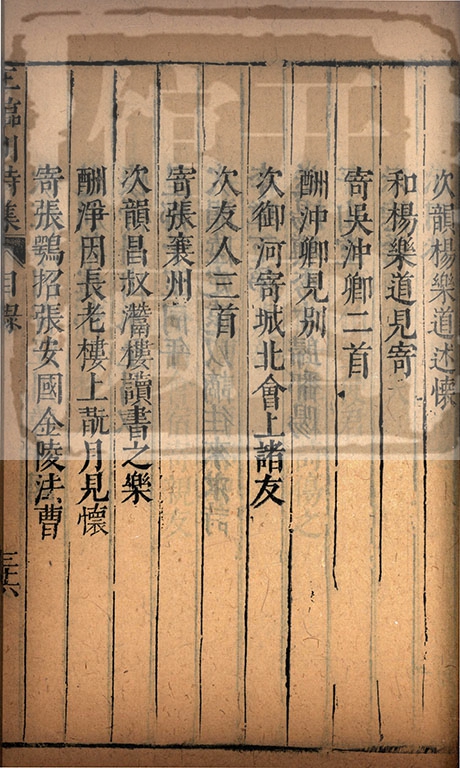 次韻楊樂道述懷
和楊樂道見寄
寄吳沖卿二首
酬沖卿見別
次御河寄城北會上諸友
次友人三首
寄張襄州
次韻昌叔灊樓讀書之樂
酬淨因長老樓上翫月見懷
寄張鶚招張安國金陵法曹
王臨川詩集 目錄
三十六